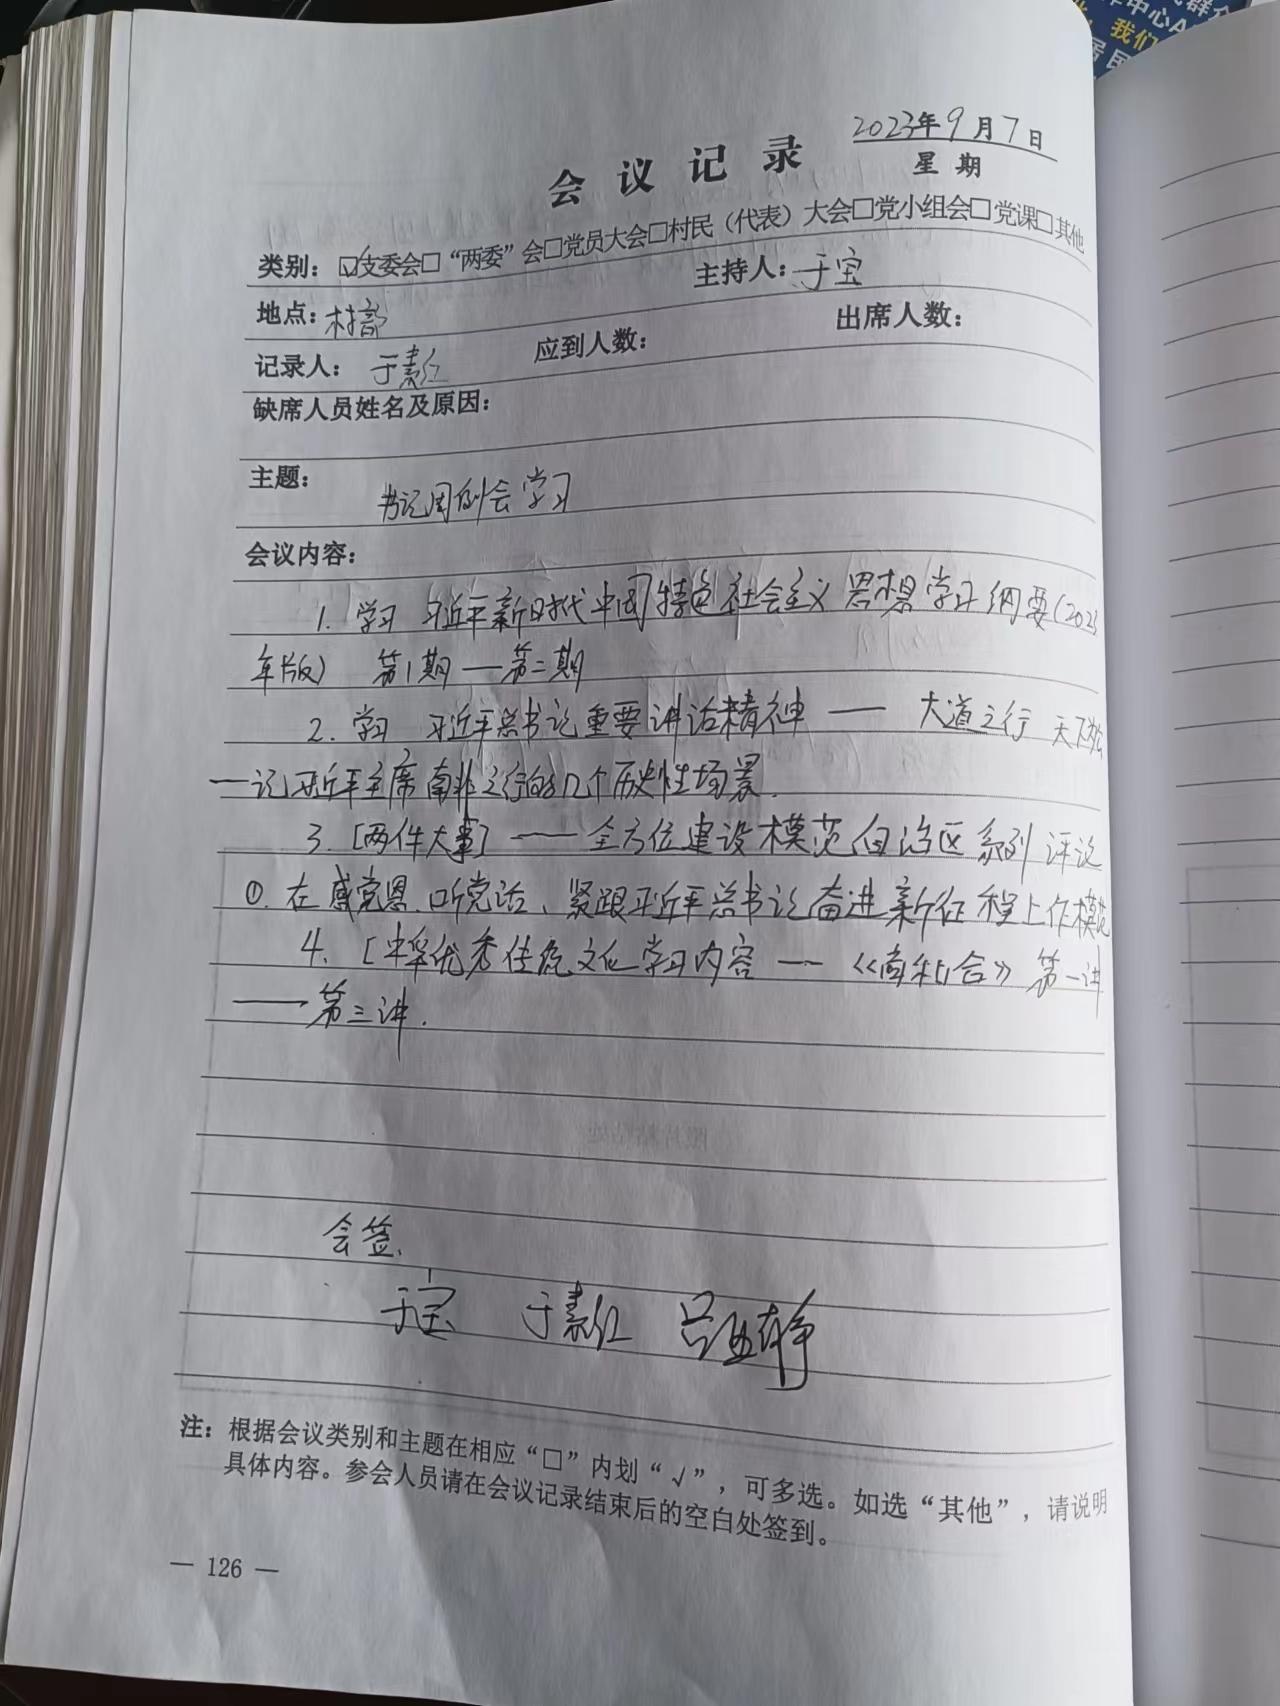 2023年9月7日
会议记录
星期
类别：☑支委会□“两委”会□党员大会□村民（代表）大会□党小组会□党课□其他
地点：村部 主持人：于宝
记录人： 应到人数： 出席人数：
缺席人员姓名及原因：
主题：
书记周例会学习
会议内容：
1. 学习 习近平新时代中国特色社会主义思想学习纲要（2023
年版） 第1期——第二期
2. 学习 习近平总书记重要讲话精神 —— 大道之行 天下为公
—记习近平主席南非之行的几个历史性场景.
3. [两件大事] —— 全方位建设模范自治区系列评论
①. 在感党恩、听党话、紧跟习近平总书记奋进新征程上作模范
4. [中华优秀传统文化学习内容 —— 第一讲
——第三讲.
会签.
于宝
注：根据会议类别和主题在相应“□”内划“√”，可多选。如选“其他”，请说明
具体内容。参会人员请在会议记录结束后的空白处签到。
— 126 —